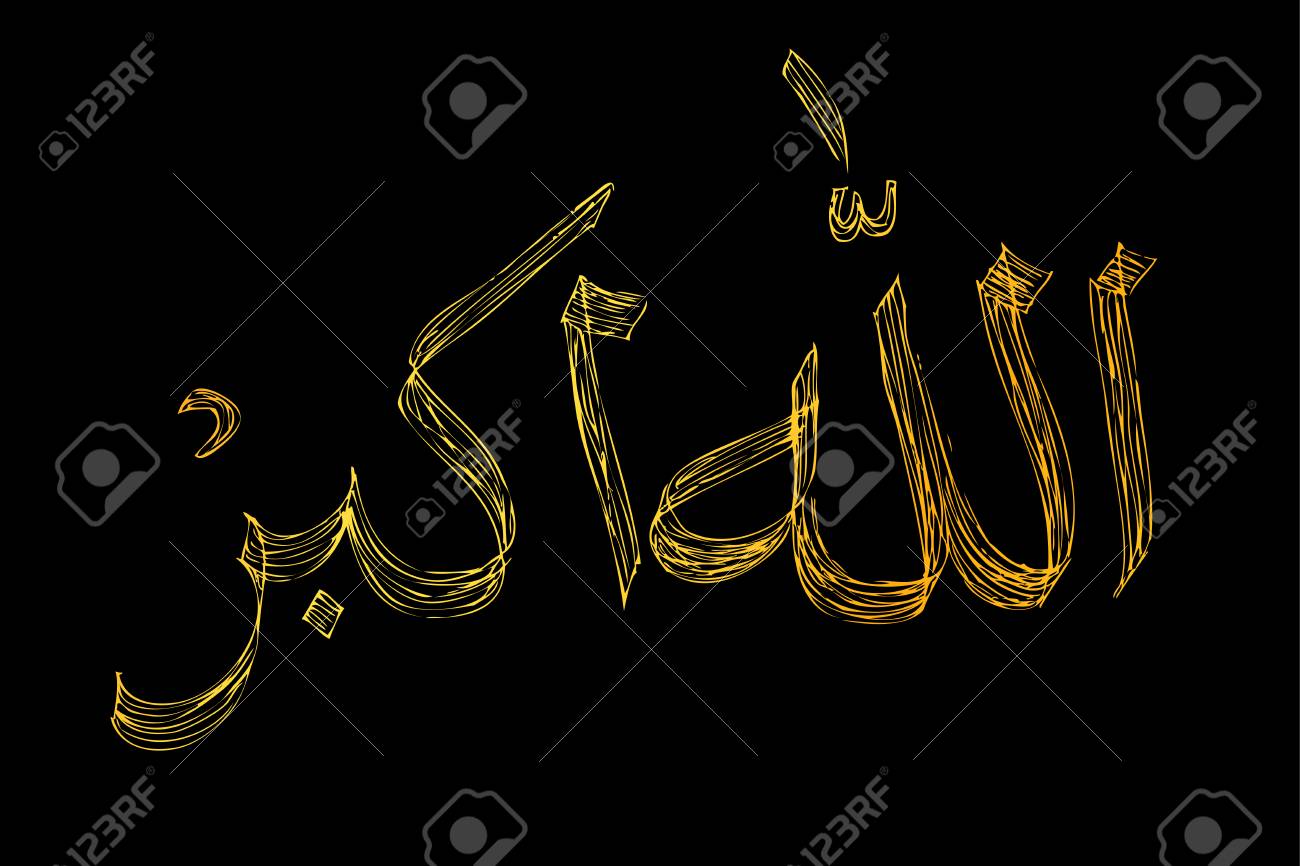 اللّٰه اكبر
123RF
123RF
123RF
123RF
123RF
123RF
123RF